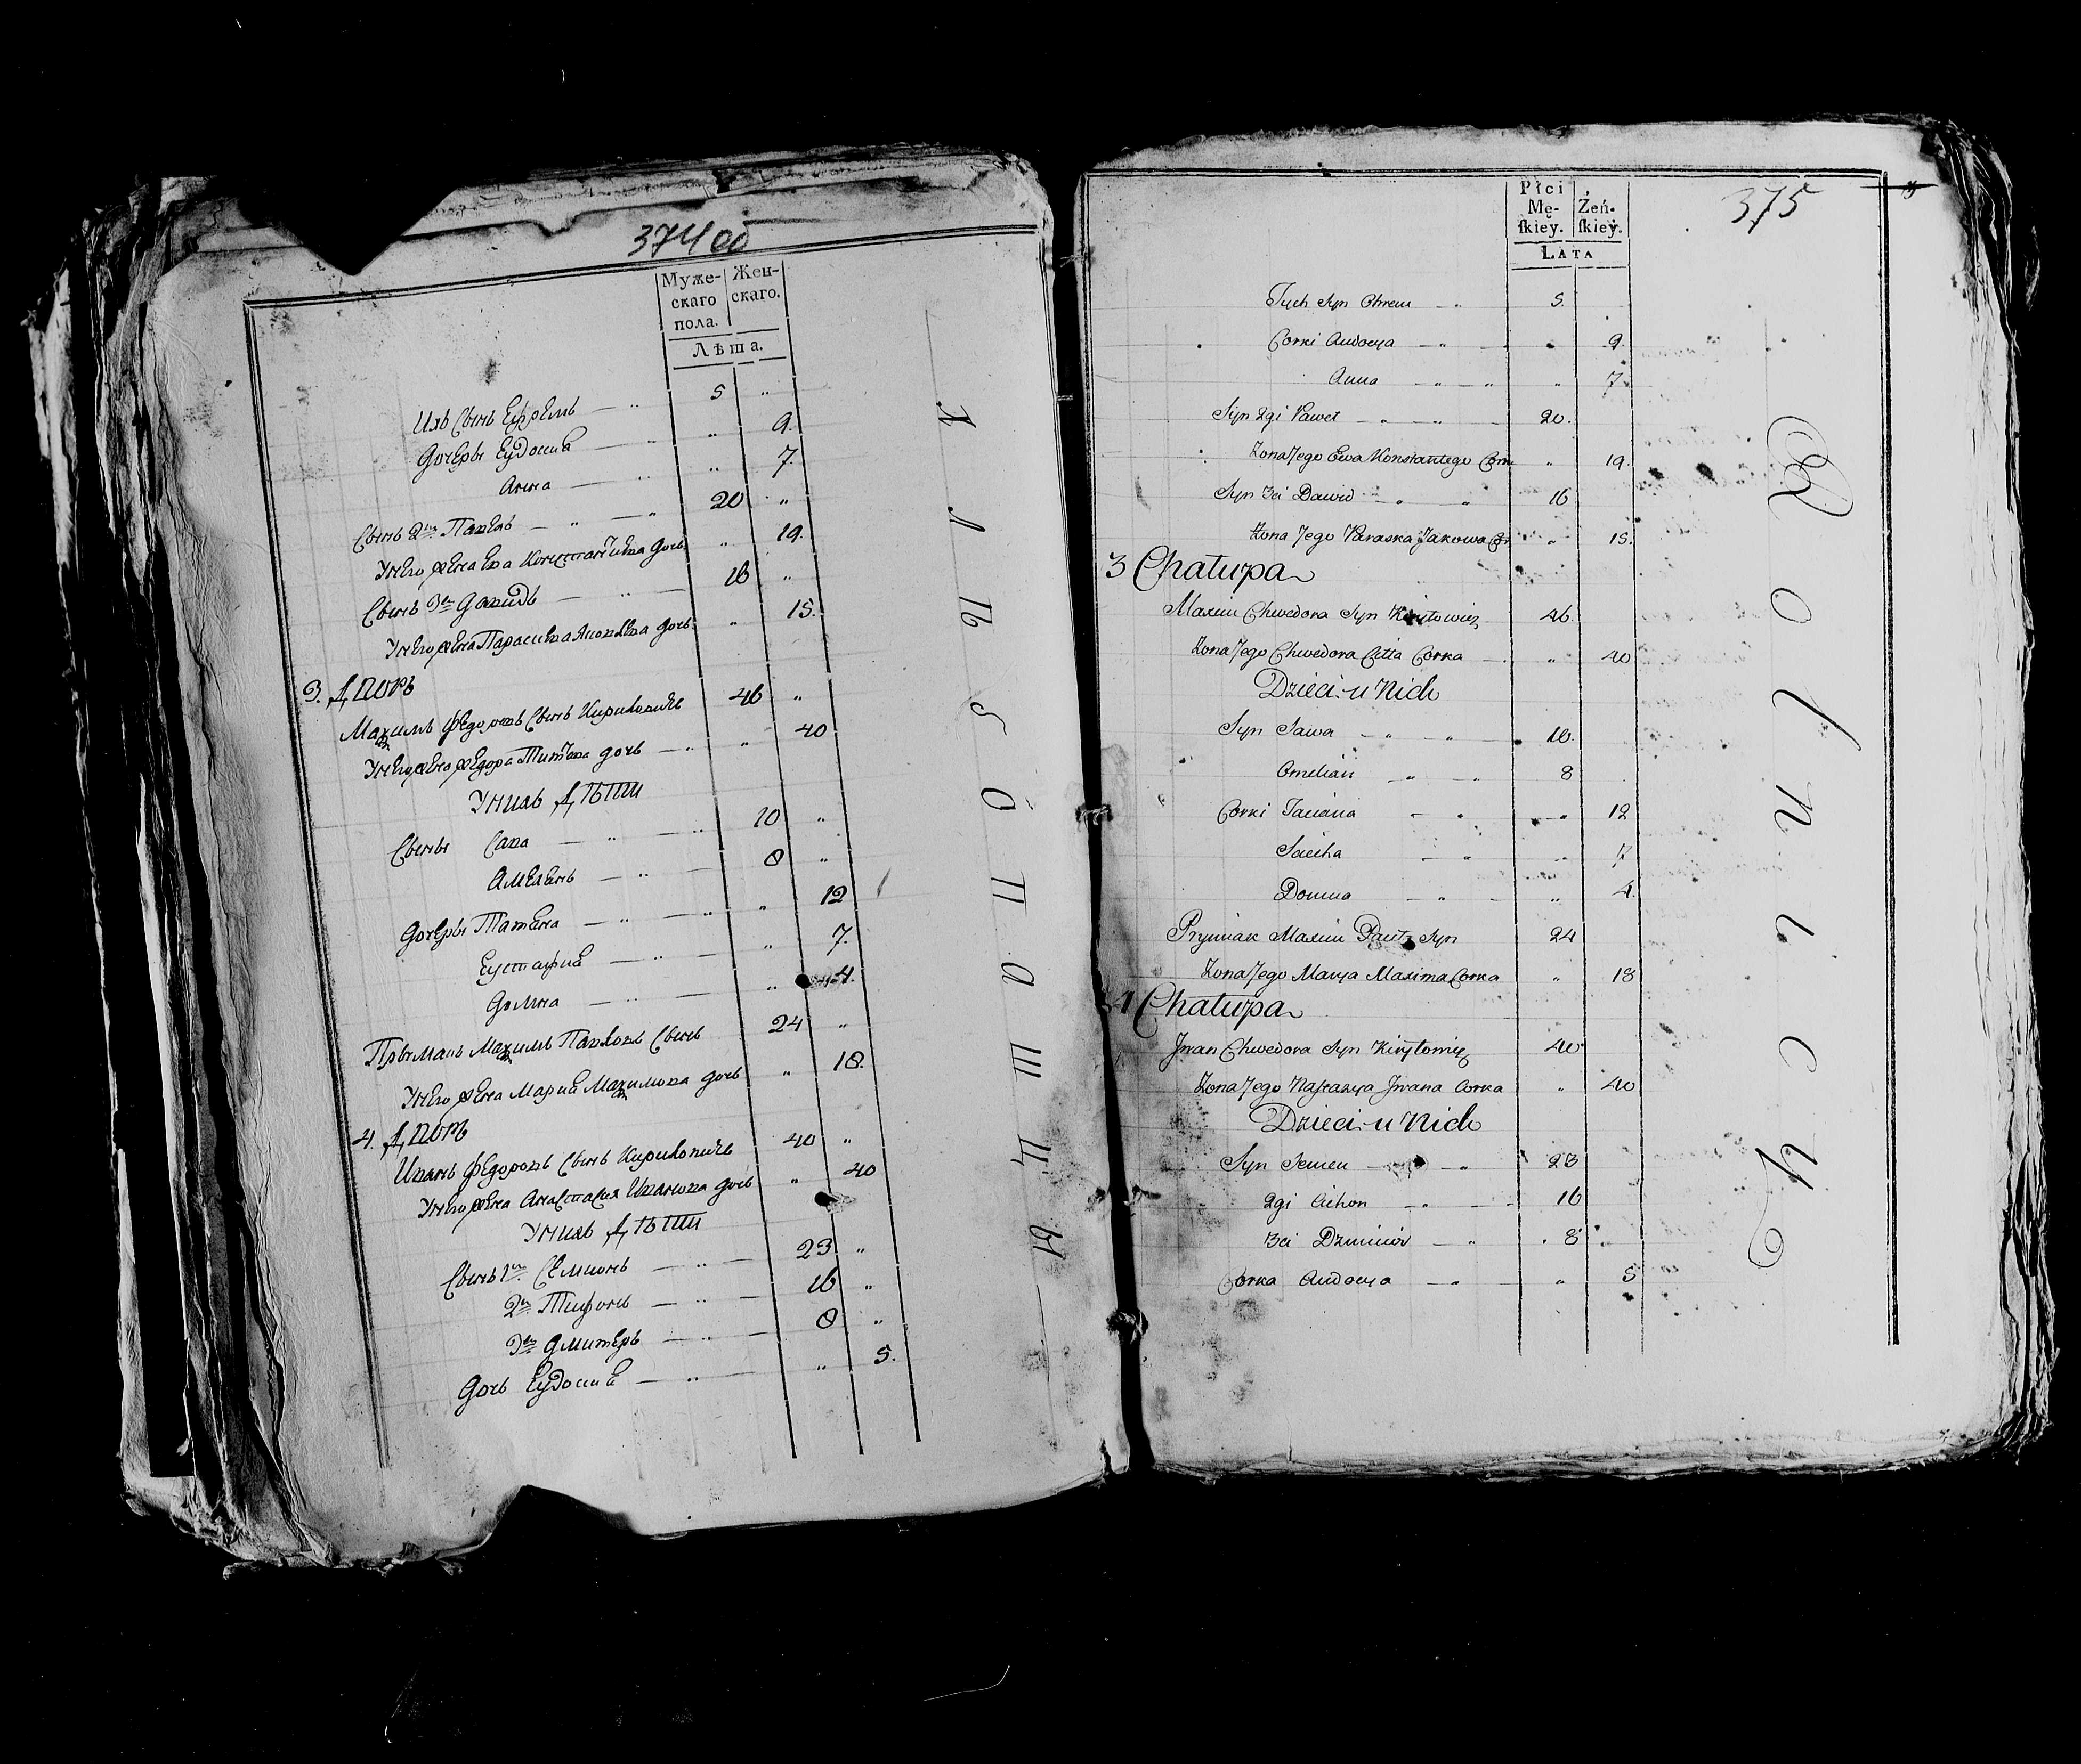 374 об
Муже- Жен-
скаго скаго.
пола.
Лѣта.
Ихъ Сынъ Ефремъ — „ 5 „
Дочеры Еудокия — „ „ 9.
Анна — „ „ 7.
Сынъ 2й Павелъ — „ — „ 20 „
У него жена Ева Константинова дочь „ 19.
Сынъ 3й Давидъ — „ — 16 „
У него жена Параскева Яковлева дочь „ 15.
3. Дворъ
Максимъ Федоровъ Сынъ Кириловичъ 46 „
У него жена Федора Титова дочь — „ „ 40
У нихъ Дѣти
Сыны Сава — „ — „ 10 „
Амелянъ — „ — 8 „
Дочеры Татяна — „ — „ „ 12
Еустафия — „ — „ 7.
Домна — „ — „ 4.
Прымакъ Максимъ Павловъ Сынъ 24 „
У него жена Мария Максимова дочь „ 18.
4. Дворъ
Иванъ Федоровъ Сынъ Кириловичъ 40 „
У него жена Анастасия Иванова дочь „ 40
У нихъ Дѣти
Сынъ 1й Семионъ — „ — 23 „
2й Тифонъ — „ — 16 „
3й Дмитеръ — „ — 8 „
Дочь Еудокия — „ — „ 5.
Хлѣбопашцы
375
Płci
Mę- Żeń-
skiey. skiey.
LATA
Tych Syn Chrem — „ 5.
Corki Audocya — „ — „ 9.
Anna — „ — „ „ 7.
Syn 2gi Paweł — „ — „ — 20.
Żona Jego Ewa Konstantego Corka „ 19.
Syn 3ci Dawid — „ „ 16
Żona Jego Paraska Jakowa Cor. „ 15.
3 Chałupa
Maxim Chwedora Syn Kiryłowicz 46.
Żona Jego Chwedora Cita Corka — „ 40
Dzieci u Nich
Syn Sawa — „ — „ — 10.
Omelian — „ — „ 8
Corki Taciana — „ — „ 12
— „ „ 7
Domna — „ — „ 4.
Prymak Maxim Syn 24
Żona Jego Marya Maxima Corka „ 18
4 Chałupa
Jwan Chwedora Syn Kiryłowicz 40
Żona Jego Nastazya Jwana Corka „ 40
Dzieci u Nich
Syn Semen — „ 23
2gi Cichon — „ — 16
3ci — „ „ 8
Corka Audocya — „ — „ 5
Rolnicy